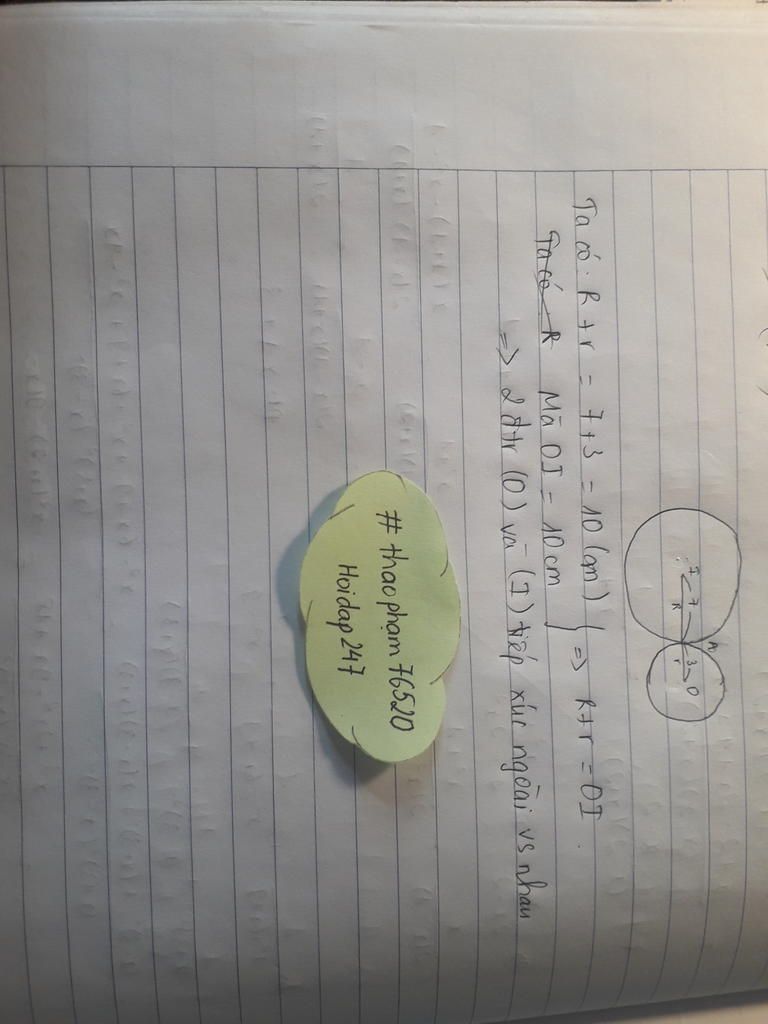 I 7 R A 3 r O
Ta có: R + r = 7 + 3 = 10 (cm) } => R + r = OI.
Ta có R Mà OI = 10 cm
=> 2 đtr (O) và (I) tiếp xúc ngoài vs nhau
# thaophạm76520
Hoidap247